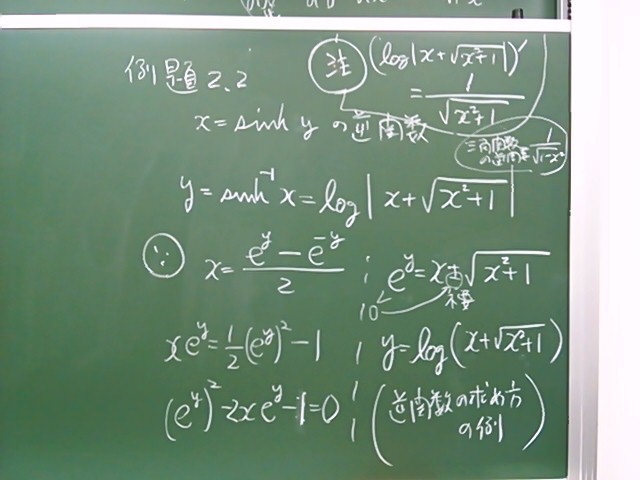 例題2.2
注 (log|x+√(x²+1)|)′
= 1/√(x²+1)
x = sinh y の逆関数
三角関数
の逆関数 1/√(1-x²)
y = sinh⁻¹ x = log|x+√(x²+1)|
∵ x = (e^y − e^−y)/2
e^y = x±√(x²+1)
複
x e^y = 1/2 (e^y)² − 1
(e^y)² − 2x e^y − 1 = 0
y = log(x+√(x²+1))
(逆関数の求め方
の例)